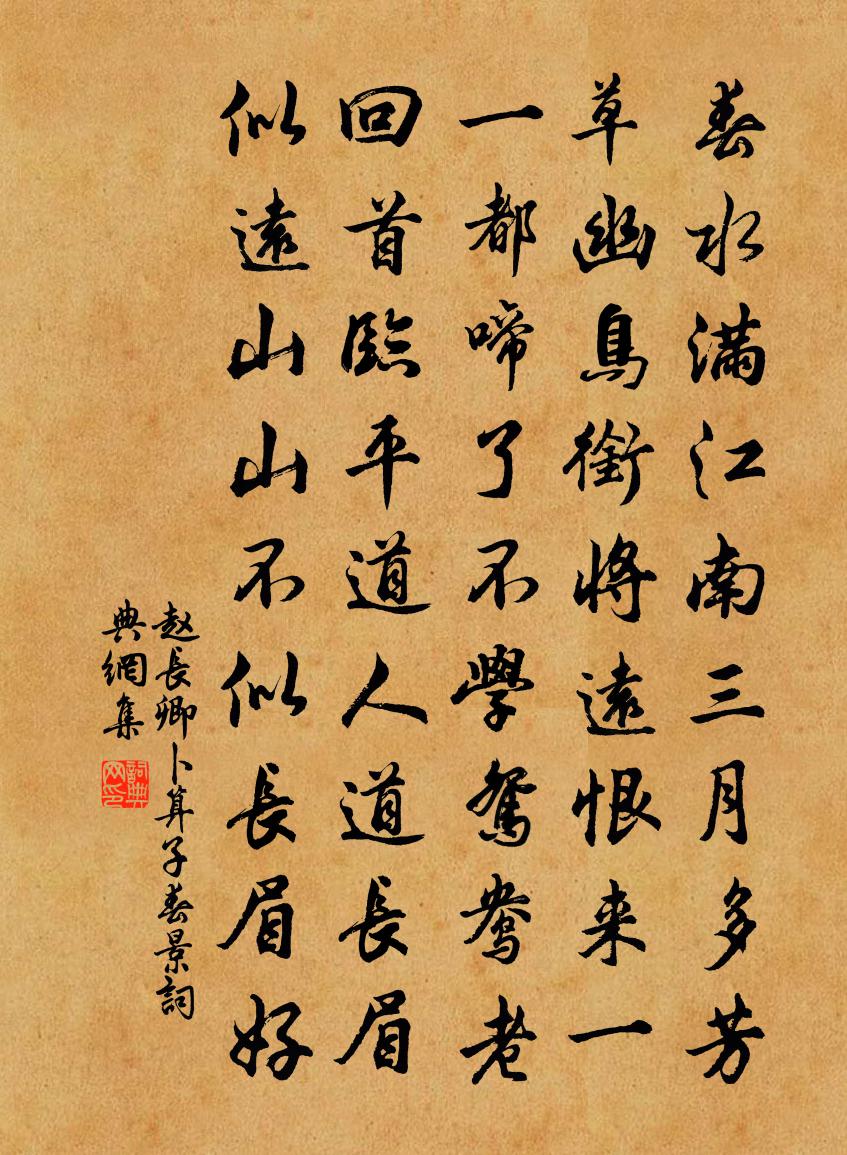 春水滿江南三月多芳
草幽鳥銜將遠恨来一
一都啼了不學鴛鴦老
回首臨平道人道長眉
似遠山山不似長眉好
赵長卿卜算子春景詞
典網集
詞典
网印